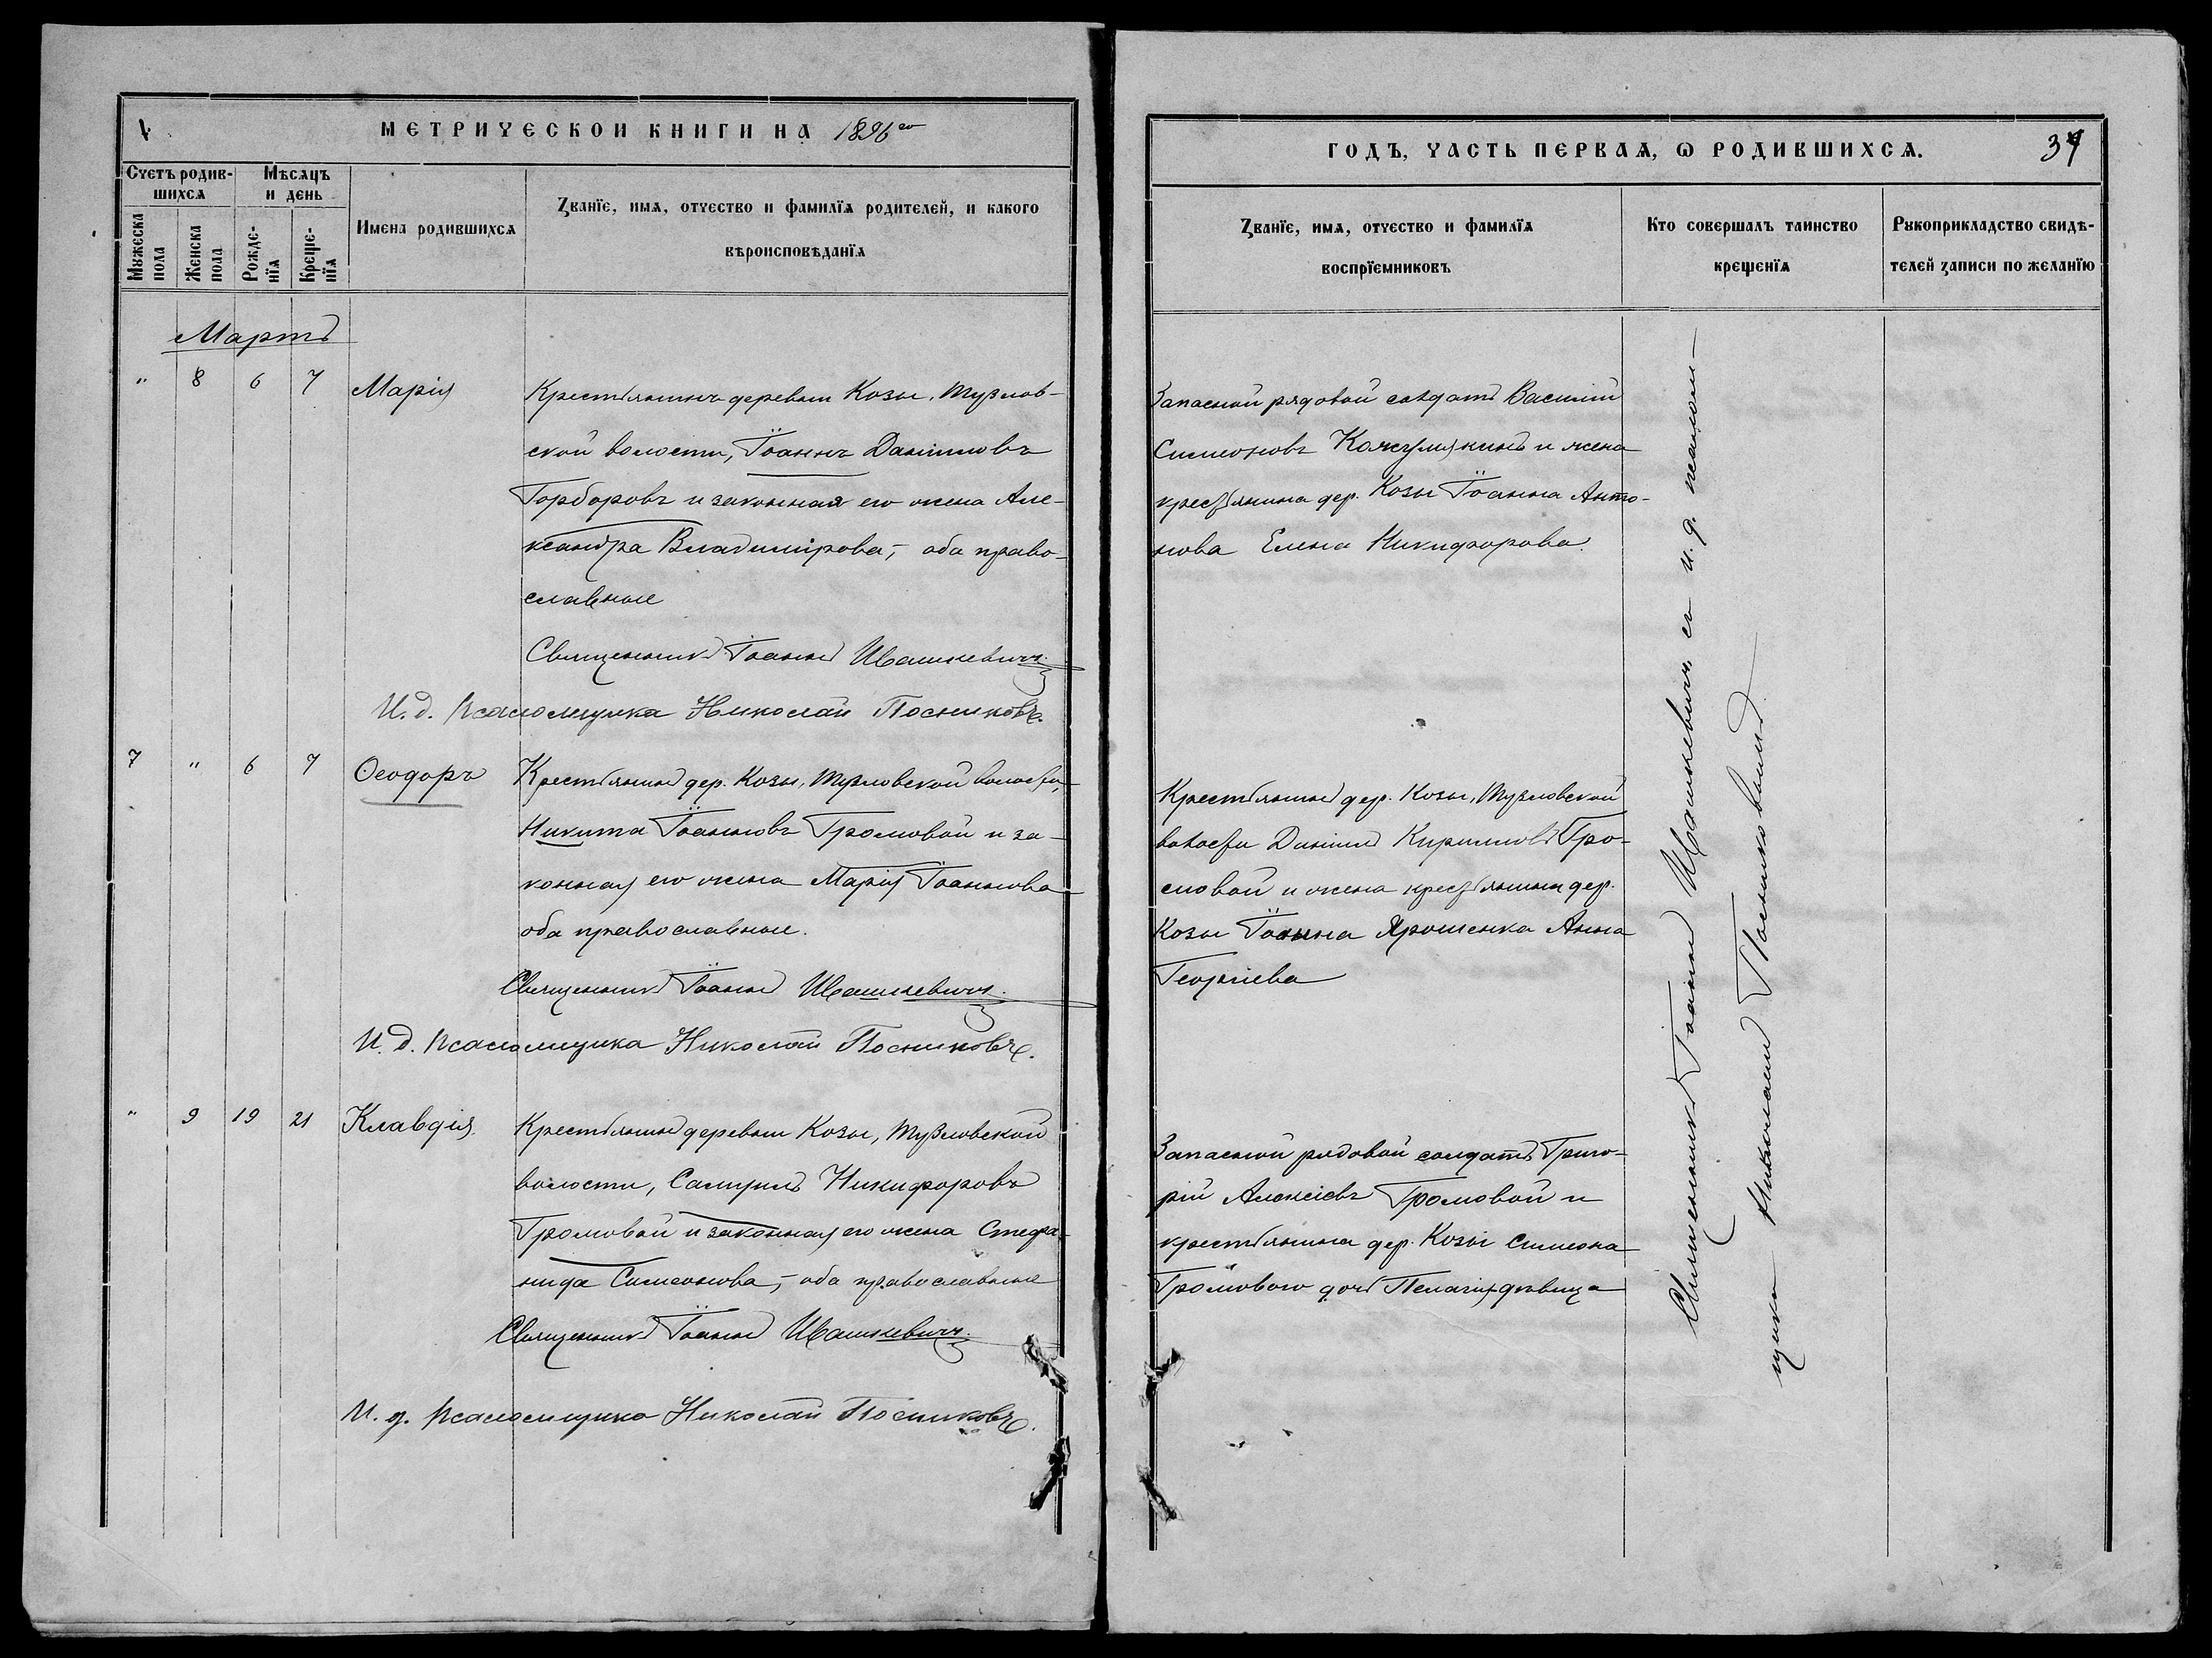 МЕТРИЧЕСКОЙ КНИГИ НА 1896го
ГОДЪ, ЧАСТЬ ПЕРВАЯ, Ѡ РОДИВШИХСЯ.
Счетъ родив-
шихся
Мѣсяцъ
и день
Мужеска
пола
Женска
пола
Рожде-
нїя
Креще-
нїя
Имена родившихся
Званїе, имя, отчество и фамилїя родителей, и какого
вѣроисповѣданїя
Званїе, имя, отчество и фамилїя
воспрїемниковъ
Кто совершалъ таинство
крещенїя
Рукоприкладство свидѣ-
телей записи по желанїю
Мартъ
" 8 6 7 Марія
Крестьянинъ деревни Козы, Тузлов-
ской волости, Іоаннъ Даніиловъ
Горборовъ и законная его жена Але-
ксандра Владимірова, – оба право-
славные
Священникъ Іоаннъ Ивашкевичъ.
И. д. псаломщика Николай Посниковъ.
Запасной рядовой солдатъ Василій
Симеоновъ Кожумякинъ и жена
крестьянина дер. Козы Іоанна Анто-
нова Елена Никифорова.
7 " 6 7 Ѳеодоръ
Крестьянинъ дер. Козы, Тузловской волости,
Никита Іоанновъ Громовой и за-
конная его жена Марія Іоаннова
оба православные.
Священникъ Іоаннъ Ивашкевичъ.
И. д. псаломщика Николай Посниковъ.
Крестьянинъ дер. Козы, Тузловской
волости Даніилъ Кирилловъ Гро-
мовой и жена крестьянина дер.
Козы Іоанна Ярошенка Анна
Георгіева
" 9 19 21 Клавдія
Крестьянинъ деревни Козы, Тузловской
волости, Самуилъ Никифоровъ
Громовой и законная его жена Стефа-
нида Симеонова, – оба православные
Священникъ Іоаннъ Ивашкевичъ.
И. д. псаломщика Николай Посниковъ.
Запасной рядовой солдатъ Григо-
рій Алексіевъ Громовой и
крестьянина дер. Козы Симеона
Громового дочь Пелагія дѣвица
Священникъ Іоаннъ Ивашкевичъ съ и. д. псалом-
щика Николаемъ Посниковымъ